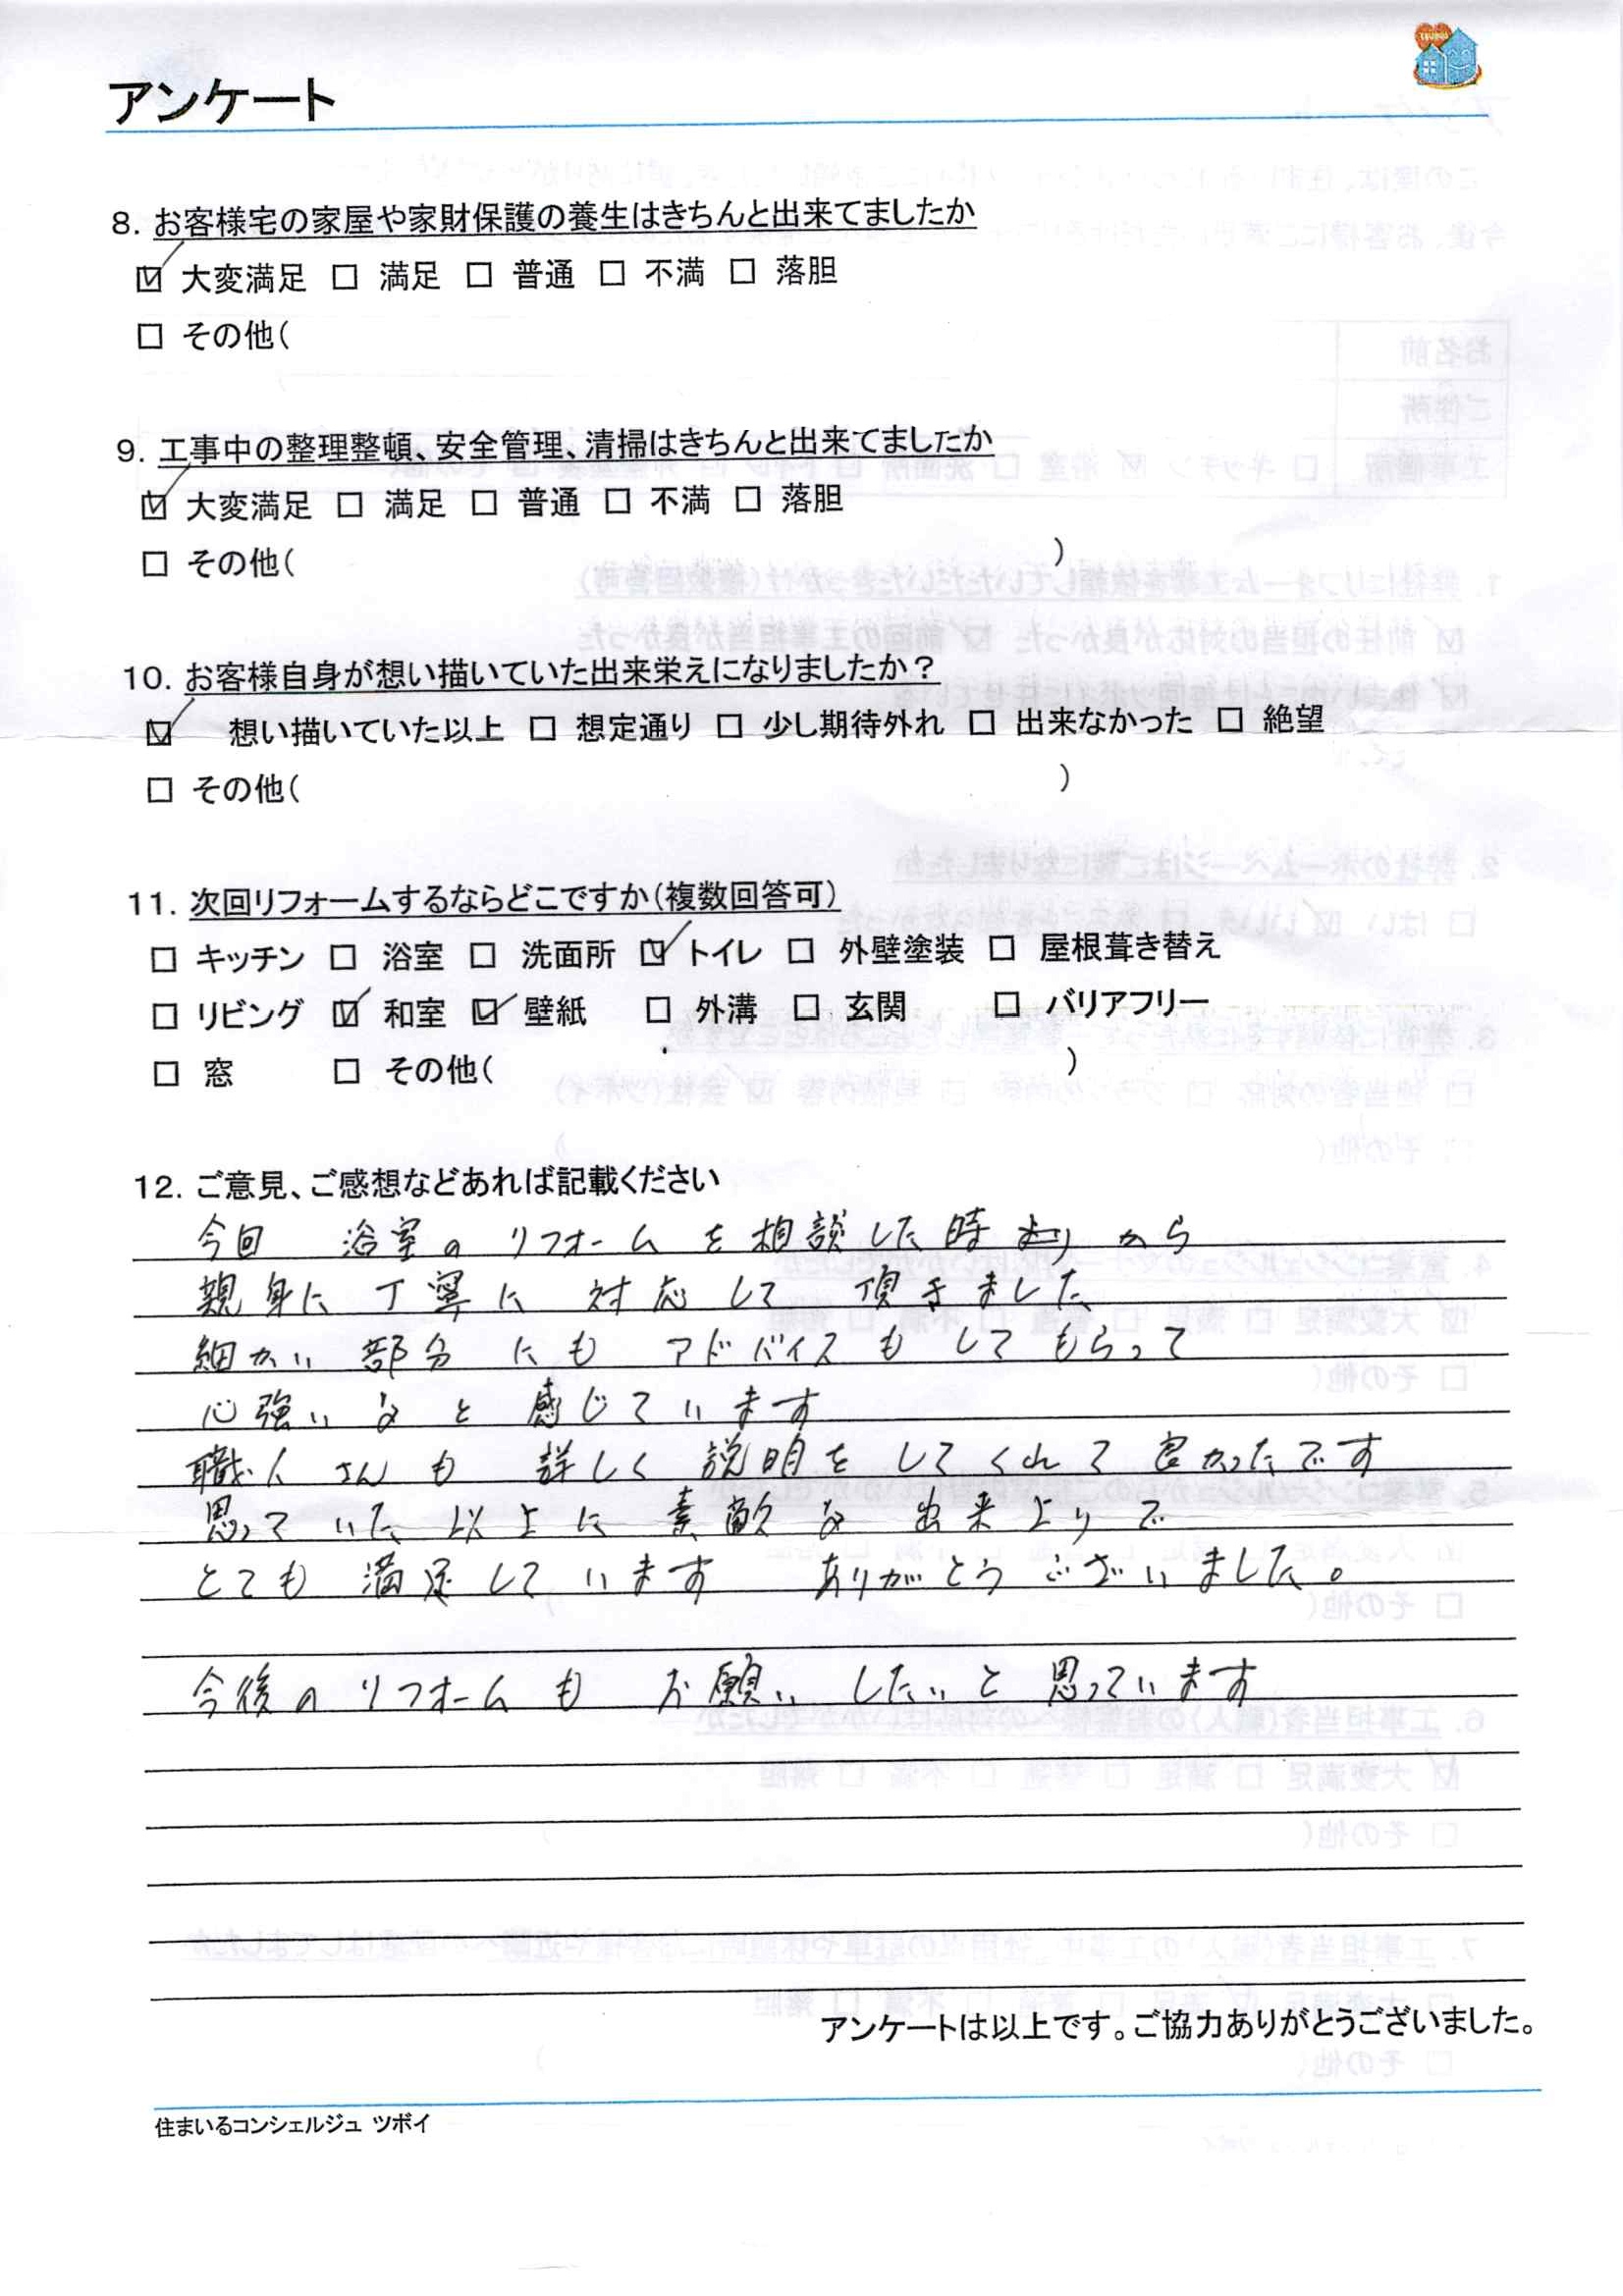 アンケート
8. お客様宅の家屋や家財保護の養生はきちんと出来てましたか
☑ 大変満足 □ 満足 □ 普通 □ 不満 □ 落胆
□ その他(
9. 工事中の整理整頓、安全管理、清掃はきちんと出来てましたか
☑ 大変満足 □ 満足 □ 普通 □ 不満 □ 落胆
□ その他( )
10. お客様自身が想い描いていた出来栄えになりましたか？
☑ 想い描いていた以上 □ 想定通り □ 少し期待外れ □ 出来なかった □ 絶望
□ その他( )
11. 次回リフォームするならどこですか(複数回答可)
□ キッチン □ 浴室 □ 洗面所 ☑ トイレ □ 外壁塗装 □ 屋根葺き替え
□ リビング ☑ 和室 ☑ 壁紙 □ 外溝 □ 玄関 □ バリアフリー
□ 窓 □ その他( )
12. ご意見、ご感想などあれば記載ください
今回 浴室の リフォームを相談した時から
親身に丁寧に 対応して 頂きました
細かい部分にも アドバイスもしてもらって
心強いなと 感じています
職人さんも 詳しく説明をしてくれて良かったです
思っていた以上に素敵な出来上りで
とても満足しています ありがとうございました。
今後のリフォームも お願いしたいと思っています
アンケートは以上です。ご協力ありがとうございました。
住まいるコンシェルジュ ツボイ